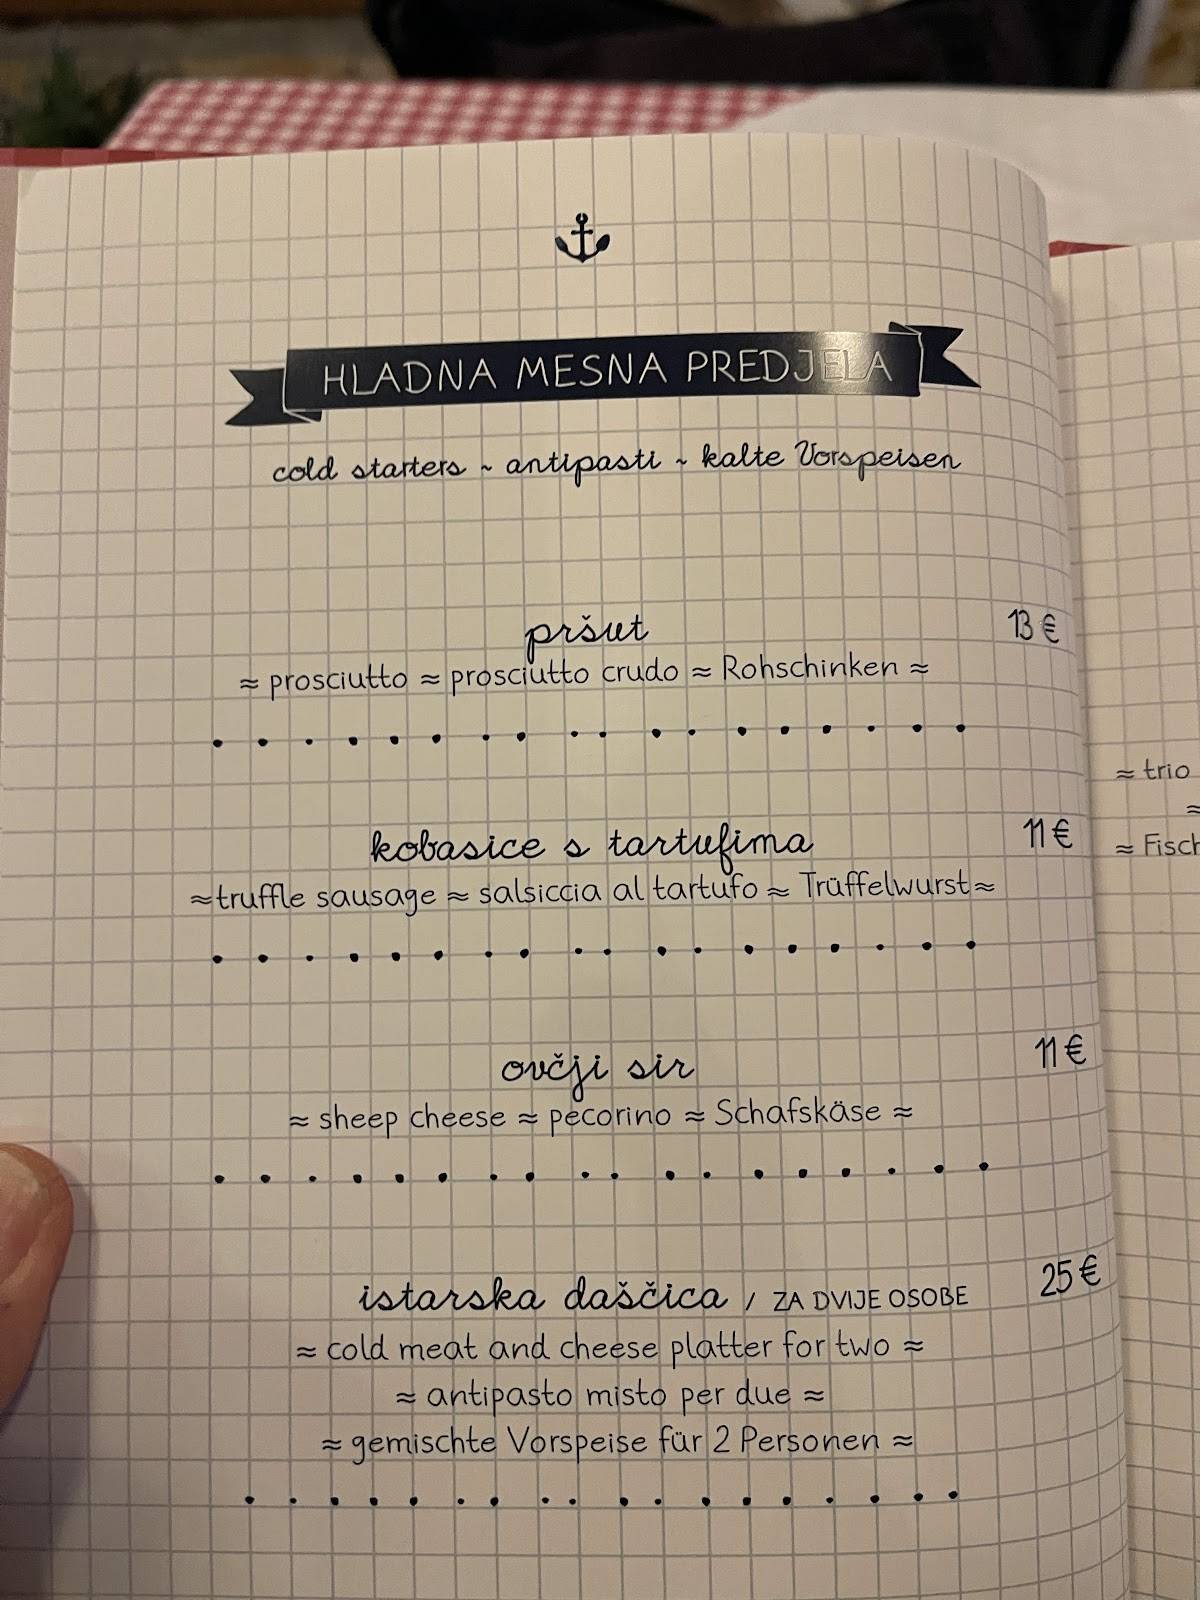 HLADNA MESNA PREDJELA
cold starters ~ antipasti ~ kalte Vorspeisen
pršut 13 €
≈ prosciutto ≈ prosciutto crudo ≈ Rohschinken ≈
kobasice s tartufima 11 €
≈ truffle sausage ≈ salsiccia al tartufo ≈ Trüffelwurst ≈
ovčji sir 11 €
≈ sheep cheese ≈ pecorino ≈ Schafskäse ≈
istarska daščica / ZA DVIJE OSOBE 25 €
≈ cold meat and cheese platter for two ≈
≈ antipasto misto per due ≈
≈ gemischte Vorspeise für 2 Personen ≈
≈ trio
≈
≈ Fisch